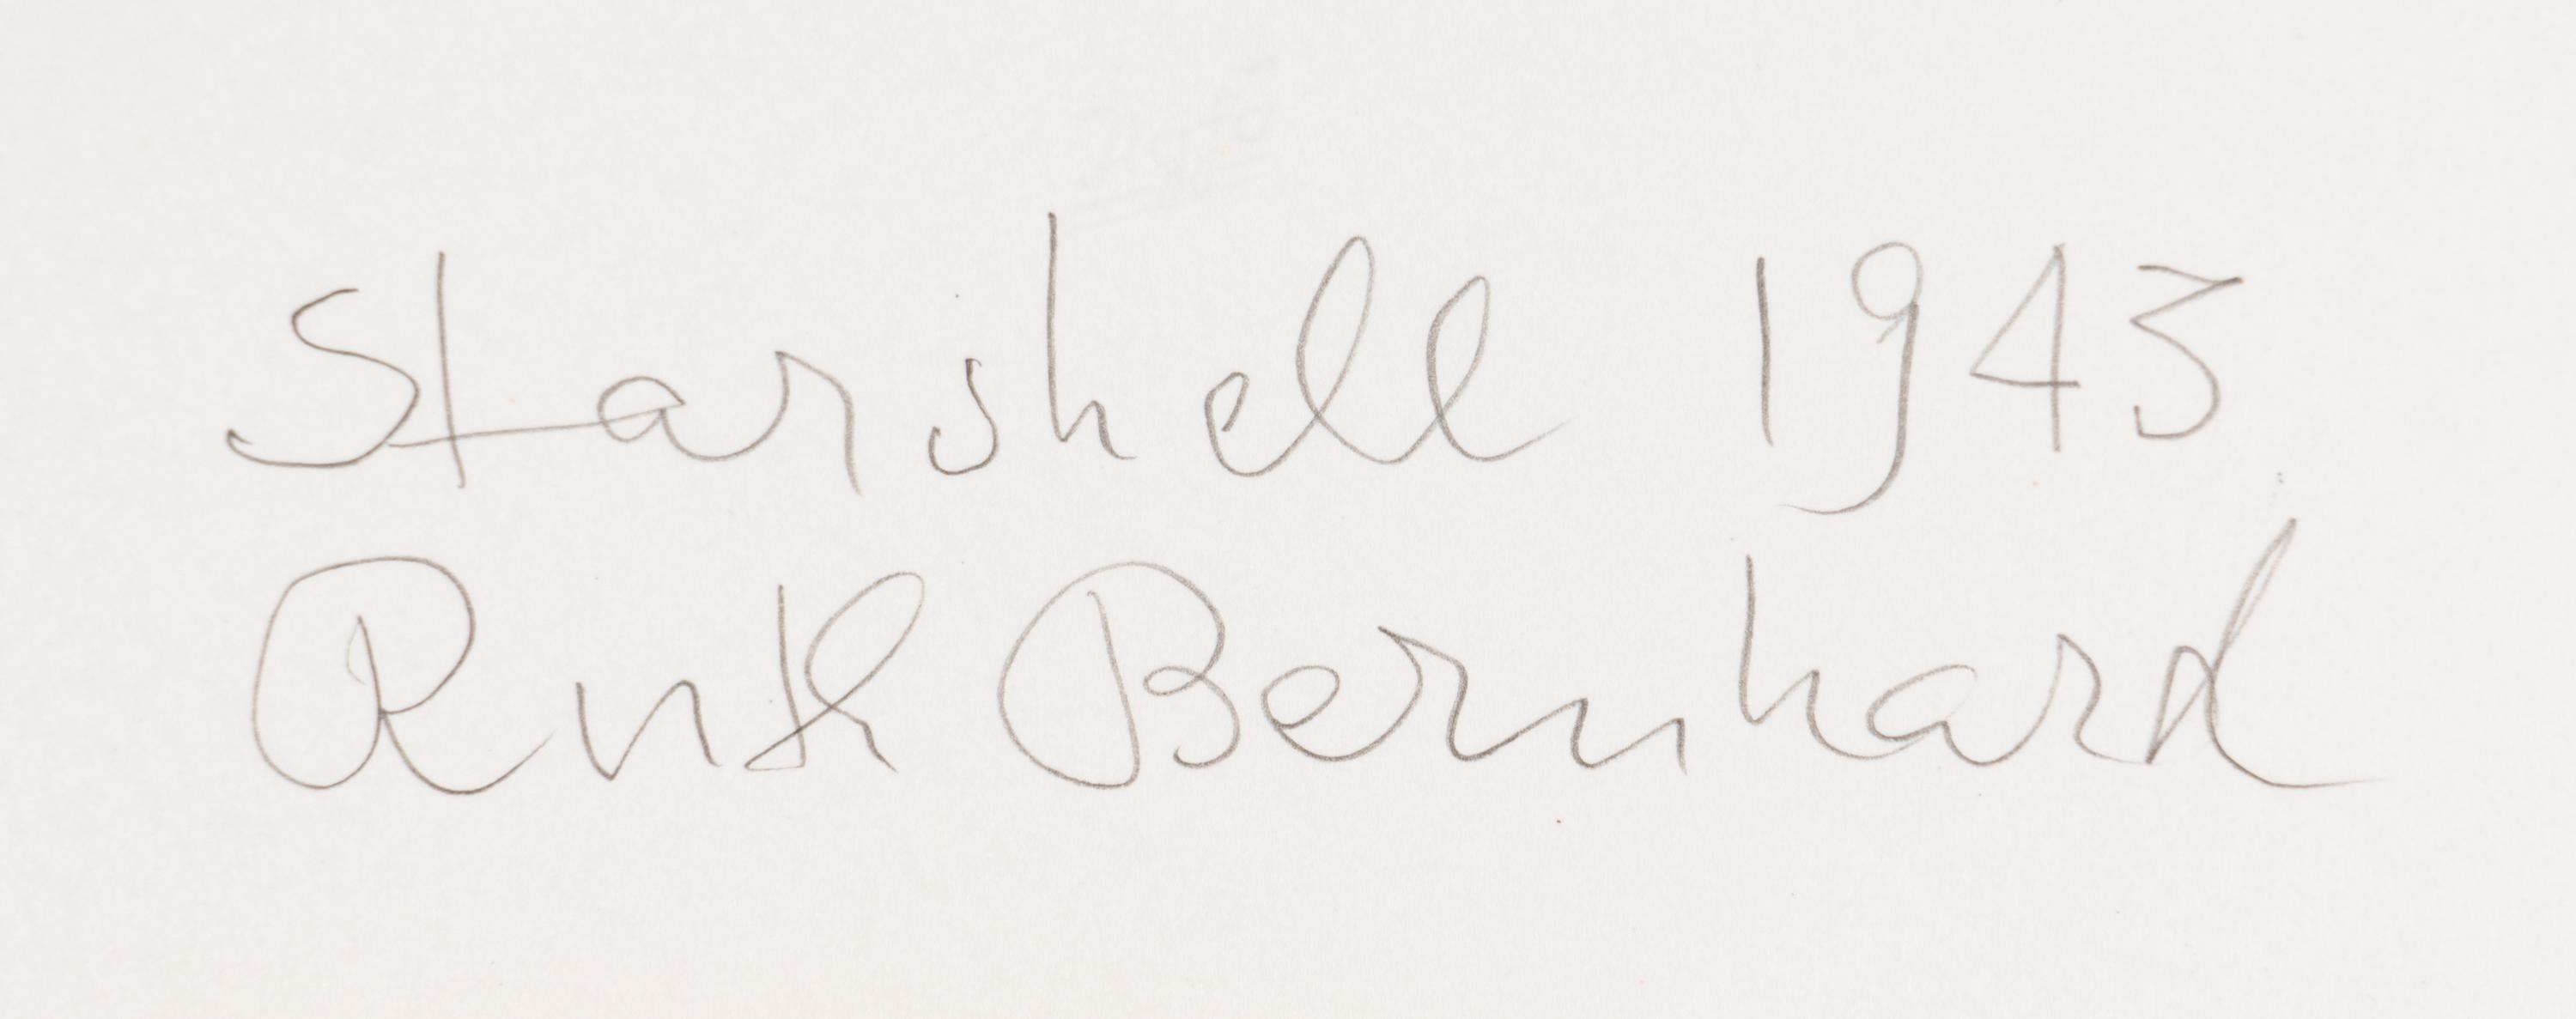 Starshell 1943
Ruth Bernhard